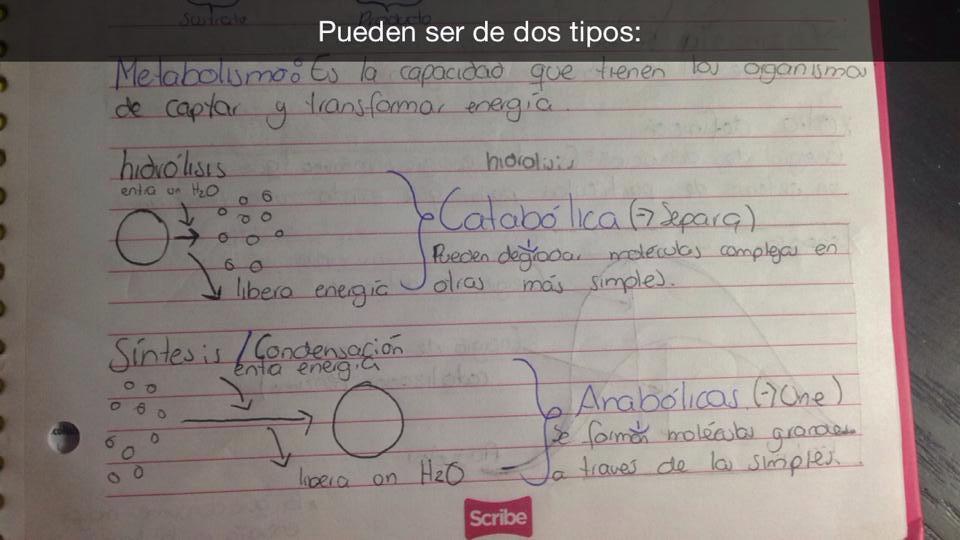 Sustrato Producto
Pueden ser de dos tipos:
Metabolismo: Es la capacidad que tienen los organismos
de captar y transformar energía.
hidrólisis
hidrolisis
entra un H2O
Catabólica (→ Separa)
Pueden degradar moléculas complejas en
libera energía
otras más simples.
Síntesis / Condensación
entra energía
Anabólicas (→ Une)
se forman moléculas grandes
a traves de las simples.
libera un H2O
Scribe